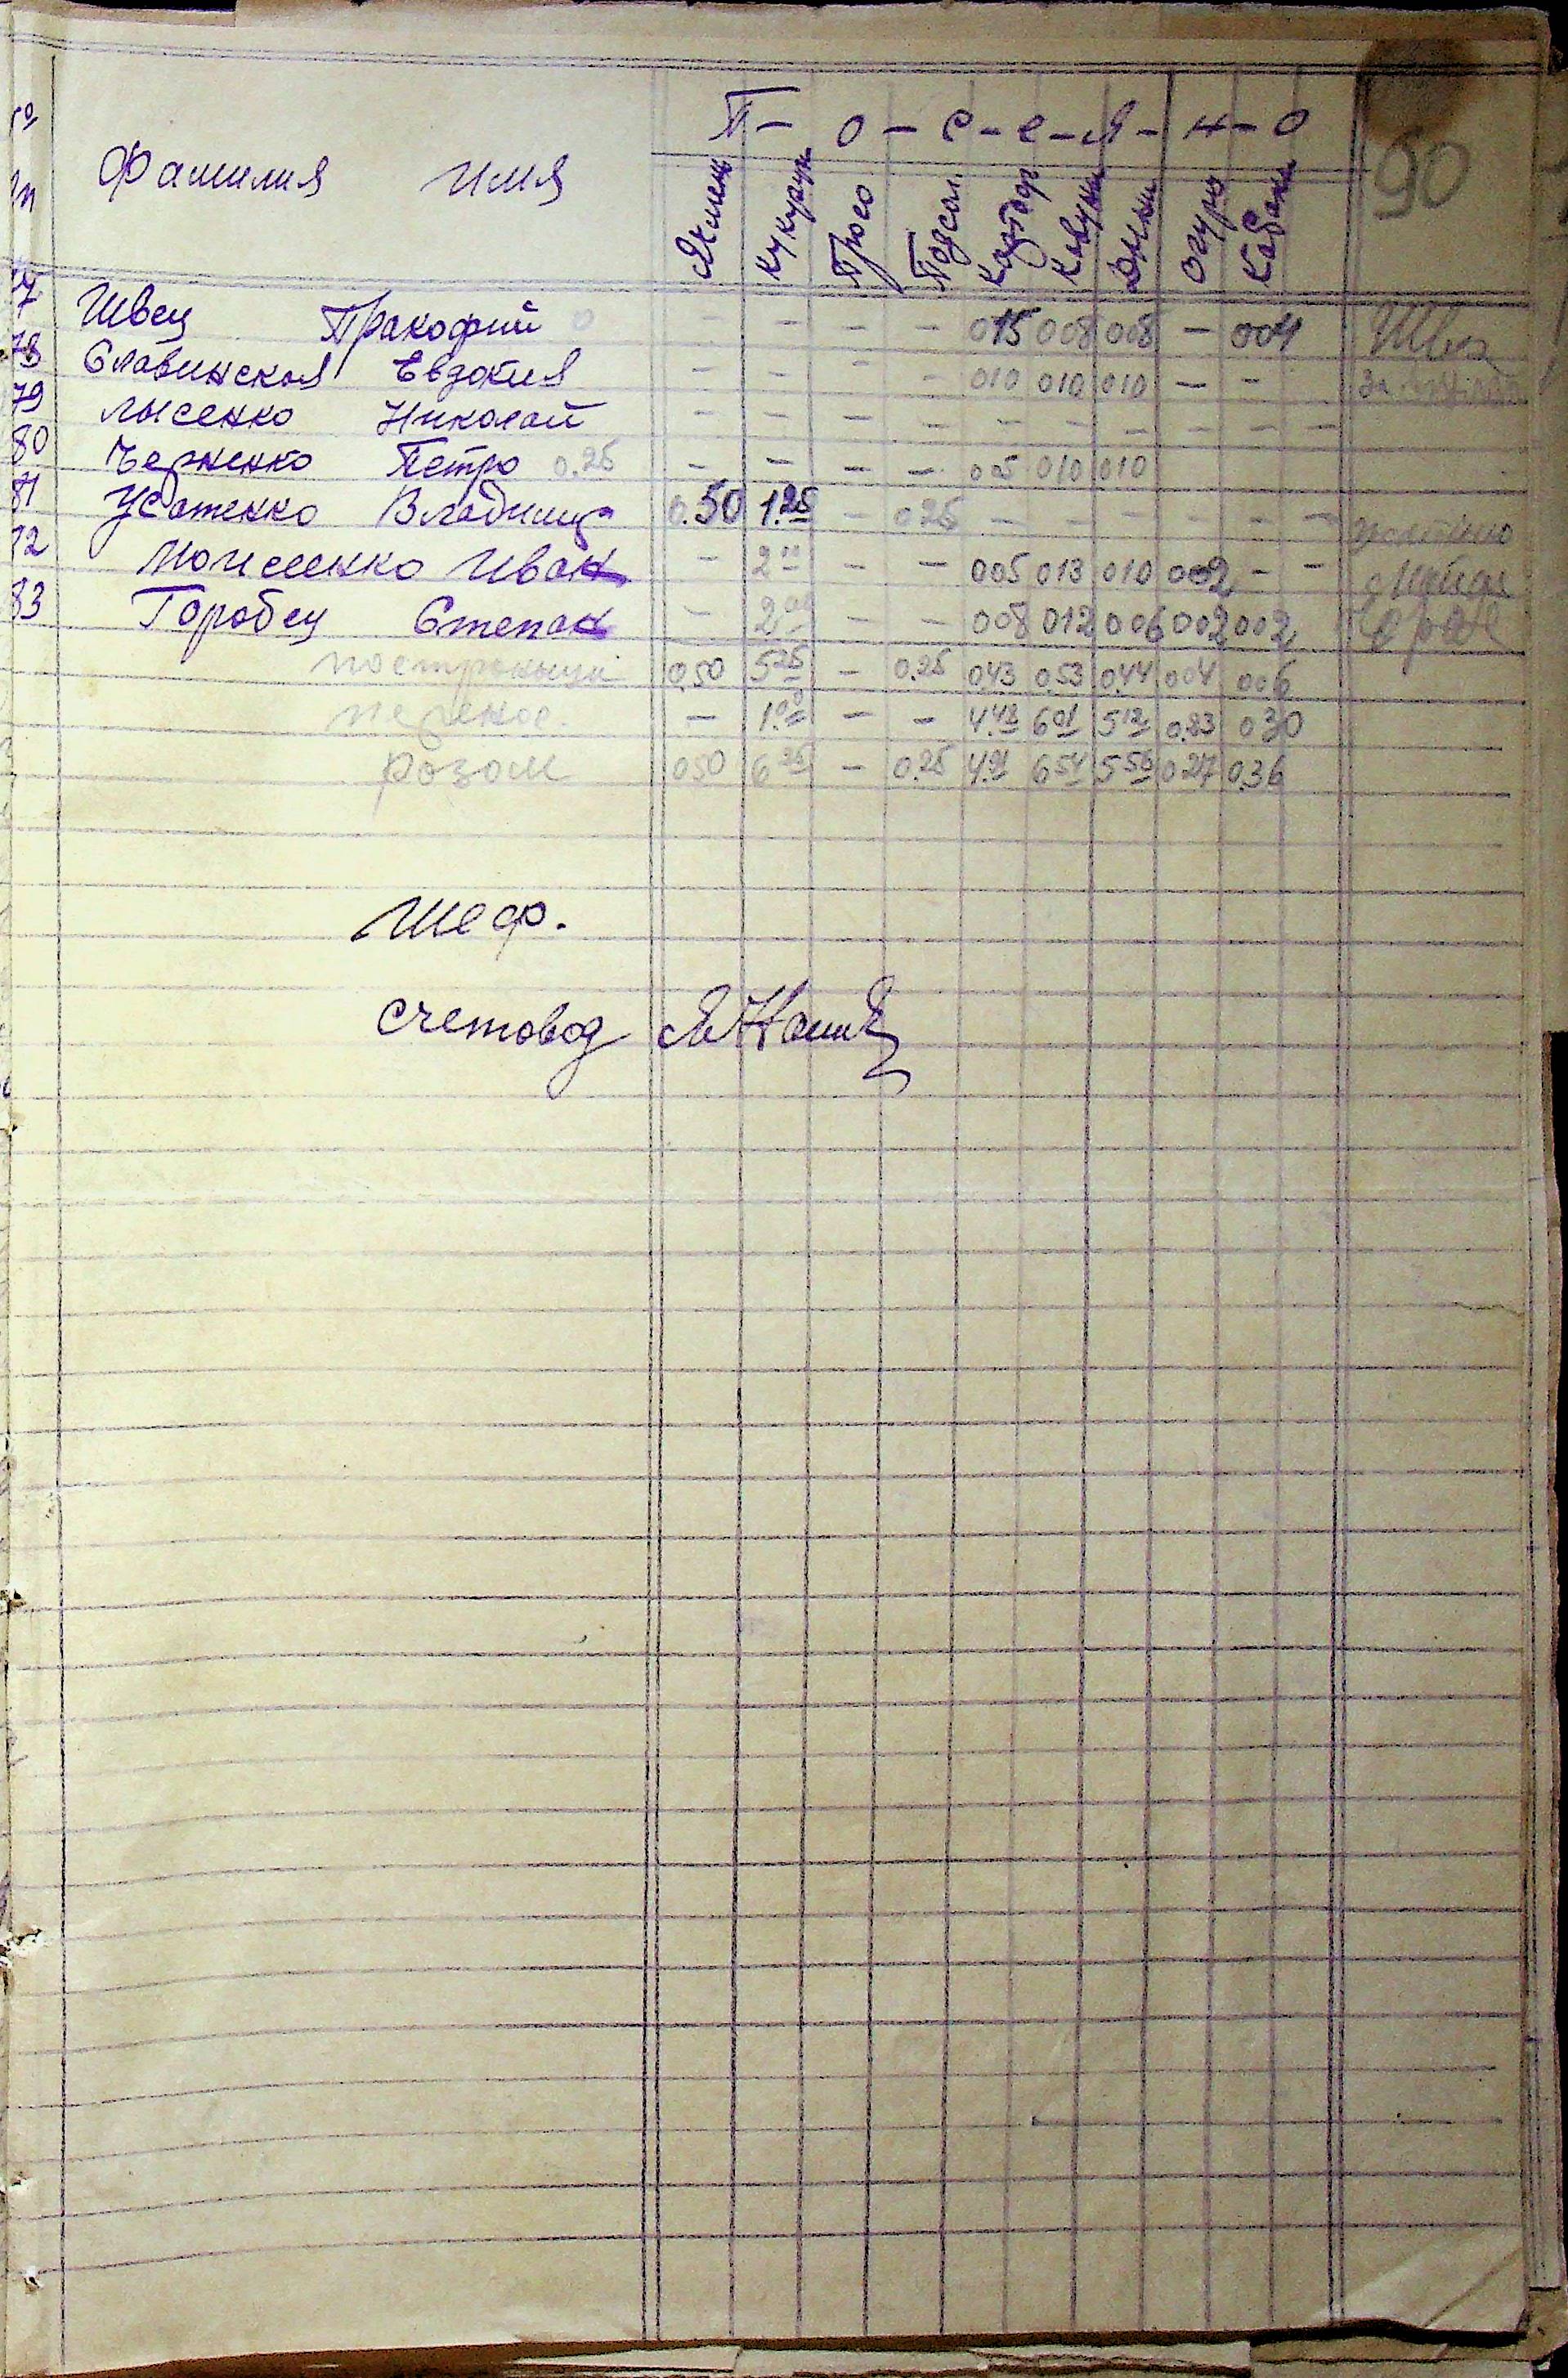 П - О - С - Е - Я - Н - О
90
№
Фамилия Имя Ячмень Кукуруз Просо Подсол. Картоф Кавуны Дыни Огур Кабаки
77 Швец Пракофий - - - - 015 008 008 - 004 Швец
78 Славинская Евдокия - - - - 010 010 010 - - За
79 Лысенко Николай - - - - - - - - - -
80 Черненко Петро 0.25 - - - - 005 010 010
81 Усатенко Владимир 0.50 1.25 - 0.25 - - - - - -
82 Моисеенко Иван - 2 00 - - 005 013 010 002 - -
83 Горобец Степан - 2 00 - - 008 012 006 002 002
0.50 5 25 - 0.25 0.43 0.53 0.44 004 006
перенос. - 1.00 - - 4.48 6 01 5 12 0.23 030
розом 050 6 25 - 0.25 4.91 6 54 5 56 0 27 0.36
Шеф.
Счетовод